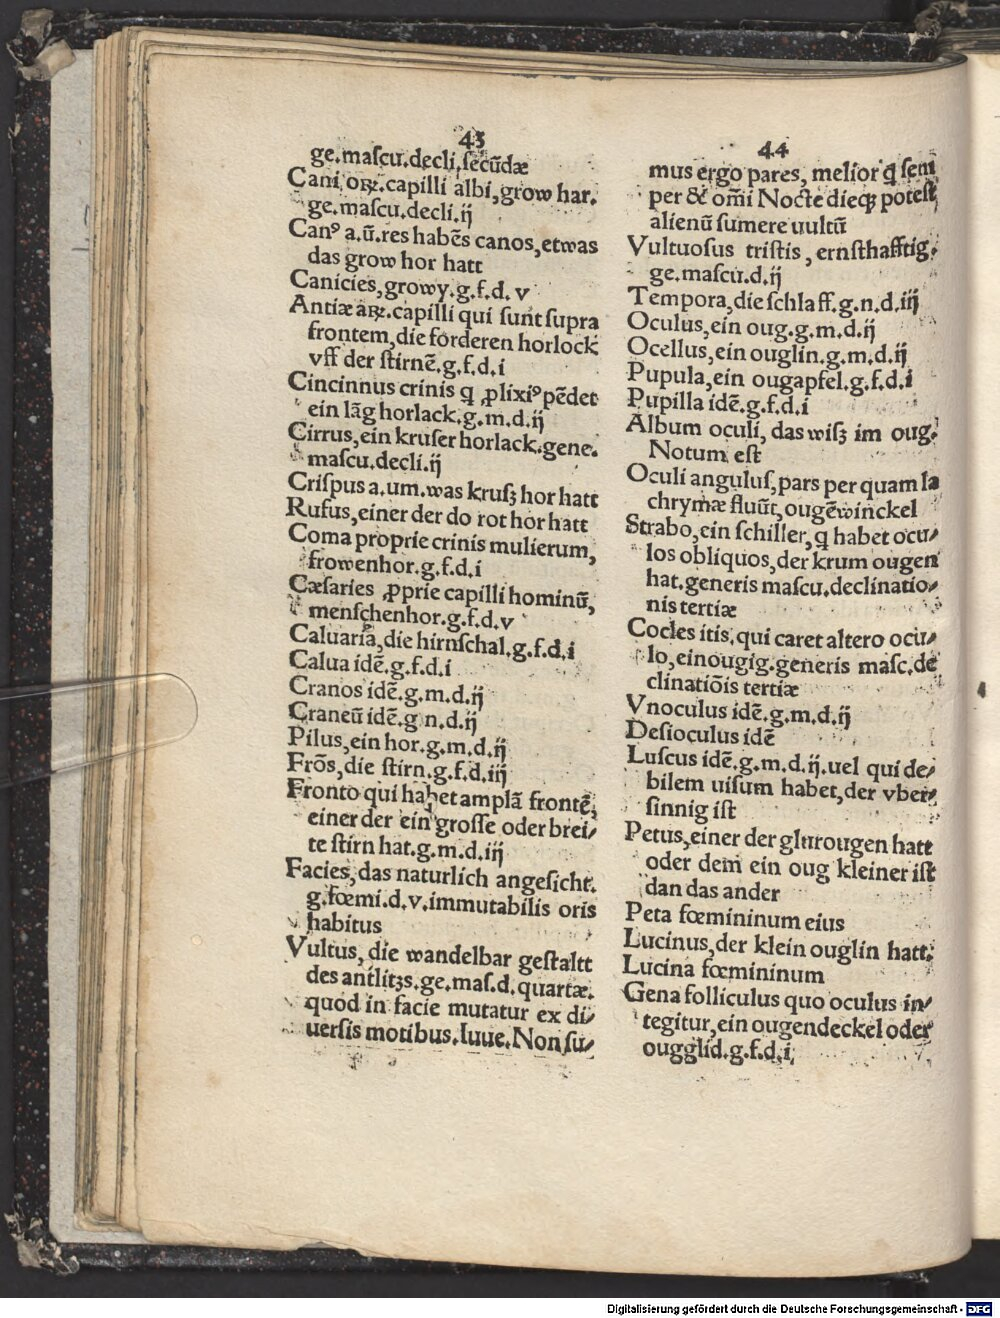 43
ge.maſcu.decli.ſecūdæ
Cani oꝝ.capilli albi,grow har.
ge.maſcu.decli.ij
Canꝰ a.ū.res habēs canos,etwas
das grow hor hatt
Canicies,growy.g.f.d.v
Antiæ aꝝ.capilli qui ſunt ſupra
frontem,die forderen horlock
vff der ſtirnē.g.f.d.i
Cincinnus crinis q ꝓlixiꝰ pēdet
ein lāg horlack.g.m.d.ij
Cirrus,ein kruſer horlack.gene.
maſcu.decli.ij
Criſpus a.um.was kruſʒ hor hatt
Rufus,einer der do rot hor hatt
Coma proprie crinis mulierum,
frowenhor.g.f.d.i
Cæſaries ꝓprie capilli hominū,
menſchenhor.g.f.d.v
Caluaria,die hirnſchal.g.f.d.i
Calua idē.g.f.d.i
Cranos idē.g.m.d.ij
Craneū idē.g.n.d.ij
Pilus,ein hor.g.m.d.ij
Frōs,die ſtirn.g.f.d.iij
Fronto qui habet amplā frontē,
einer der ein groſſe oder brei⸗
te ſtirn hat.g.m.d.iij
Facies,das naturlich angeſicht.
g.fœmi.d.v.immutabilis oris
habitus
Vultus, die wandelbar geſtaltt
des antlitʒs.ge.maſ.d.quartæ.
quod in facie mutatur ex di⸗
uerſis motibus.Iuue.Non ſu⸗
44
mus ergo pares, melior q̄ ſem
per & om̄i Nocte dieqꝫ poteſt
alienū ſumere uultū
Vultuoſus triſtis, ernſthafftig.
ge.maſcu.d.ij
Tempora,die ſchlaff.g.n.d.iij
Oculus,ein oug.g.m.d.ij
Ocellus,ein ouglin.g.m.d.ij
Pupula,ein ougapfel.g.f.d.i
Pupilla idē.g.f.d.i
Album oculi, das wiſʒ im oug.
Notum eſt
Oculi angulus,pars per quam la
chrymæ fluūt,ougēwinckel
Strabo,ein ſchiller,q habet ocu⸗
los obliquos,der krum ougen
hat.generis maſcu.declinatio⸗
nis tertiæ
Cocles itis,qui caret altero ocu⸗
lo,einougig.generis maſc.de
clinatiōis tertiæ
Vnoculus idē.g.m.d.ij
Deſioculus idē
Luſcus idē.g.m.d.ij.uel qui de⸗
bilem uiſum habet,der vber⸗
ſinnig iſt
Petus,einer der glurougen hatt
oder dem ein oug kleiner iſt
dan das ander
Peta fœmininum eius
Lucinus,der klein ouglin hatt.
Lucina fœmininum
Gena folliculus quo oculus in⸗
tegitur,ein ougendeckel oder
ougglid.g.f.d.i
Digitalisierung gefördert durch die Deutsche Forschungsgemeinschaft - DFG